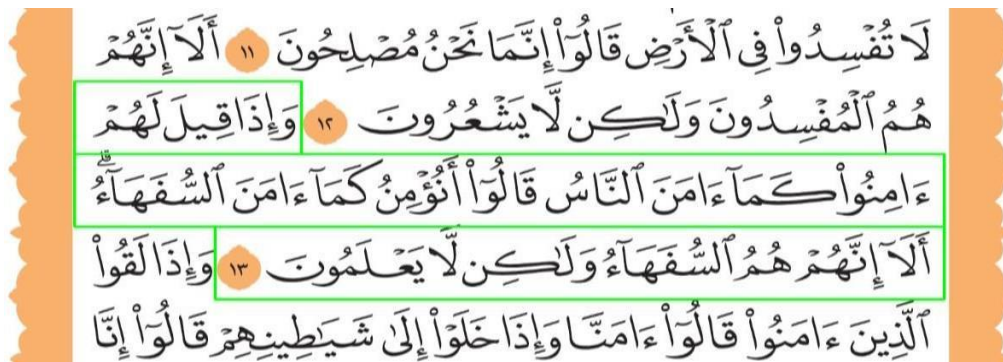 لَا تُفْسِدُوا۟ فِى ٱلْأَرْضِ قَالُوٓا۟ إِنَّمَا نَحْنُ مُصْلِحُونَ ١١ أَلَآ إِنَّهُمْ
هُمُ ٱلْمُفْسِدُونَ وَلَـٰكِن لَّا يَشْعُرُونَ ١٢ وَإِذَا قِيلَ لَهُمْ
ءَامِنُوا۟ كَمَآ ءَامَنَ ٱلنَّاسُ قَالُوٓا۟ أَنُؤْمِنُ كَمَآ ءَامَنَ ٱلسُّفَهَآءُ ۗ
أَلَآ إِنَّهُمْ هُمُ ٱلسُّفَهَآءُ وَلَـٰكِن لَّا يَعْلَمُونَ ١٣ وَإِذَا لَقُوا۟
ٱلَّذِينَ ءَامَنُوا۟ قَالُوٓا۟ ءَامَنَّا وَإِذَا خَلَوْا۟ إِلَىٰ شَيَـٰطِينِهِمْ قَالُوٓا۟ إِنَّا